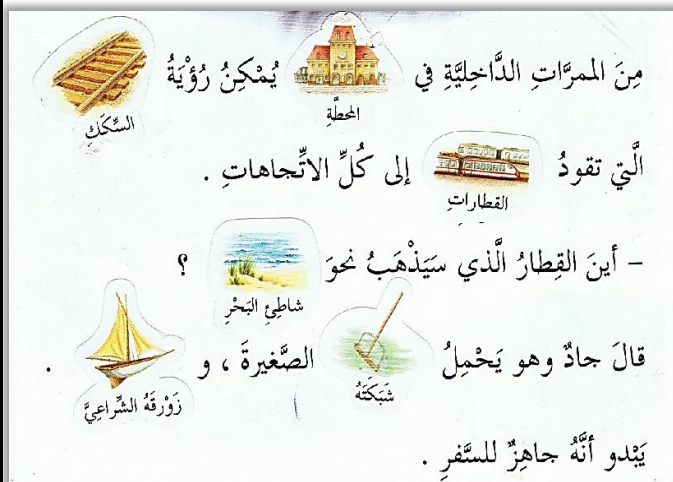 مِنَ الممرَّاتِ الدَّاخِليَّةِ في المحطَّةِ يُمْكِنُ رُؤْيَةُ السِّكَكِ
الَّتي تقودُ القطاراتِ إلى كُلِّ الاتِّجاهاتِ .
– أينَ القِطارُ الَّذي سَيَذْهَبُ نحوَ شاطِئِ البَحْرِ ؟
قالَ جادٌ وهو يَحْمِلُ شَبَكَتَهُ الصَّغيرةَ ، و زَوْرقَهُ الشِّراعِيَّ .
يَبْدو أنَّهُ جاهِزٌ للسَّفرِ .